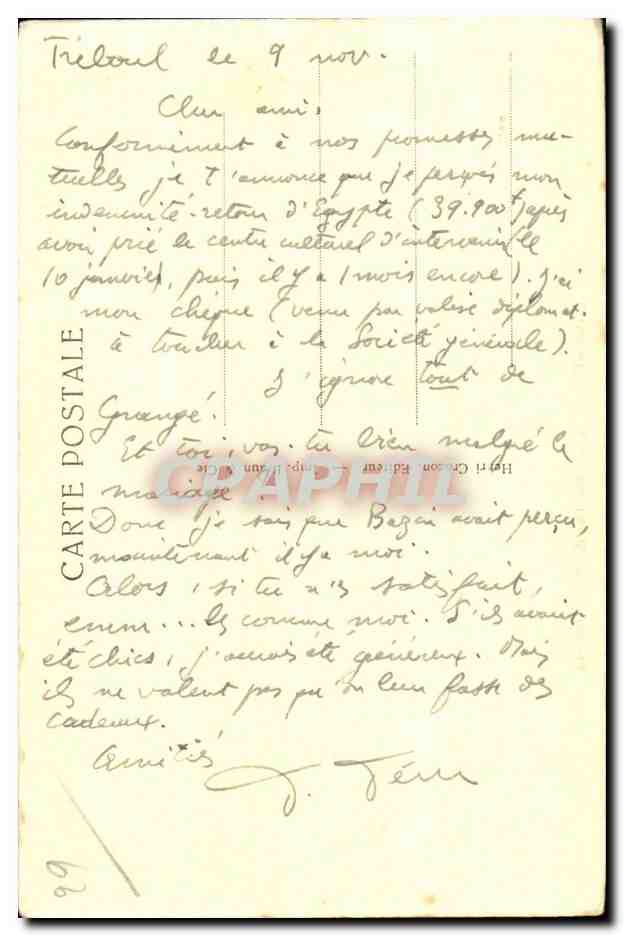 Tréboul le 9 nov.
Cher ami,
Conformément à nos promesses mu-
tuelles je t'annonce que je perçois mon
indemnité-retour d'Egypte (39.900f) après
avoir prié le centre culturel d'intervenir (le
10 janvier, puis il y a 1 mois encore). J'ai
mon chèque (venu par valise diplomat.
à toucher à la Société générale).
J'ignore tout de
Grangé.
Et toi, vas-tu bien malgré le
mariage
Donc je sais que Bazin avait perçu,
maintenant il y a moi.
Alors, si tu n'es satisfait,
emm... les comme moi. S'ils avaient
été chics, j'aurais été généreux. Mais
ils ne valent pas qu'on leur fasse des
cadeaux.
Amitiés
CARTE POSTALE
Henri Crozon, Editeur — Imp. Braun & Cie
CPAPHIL
29